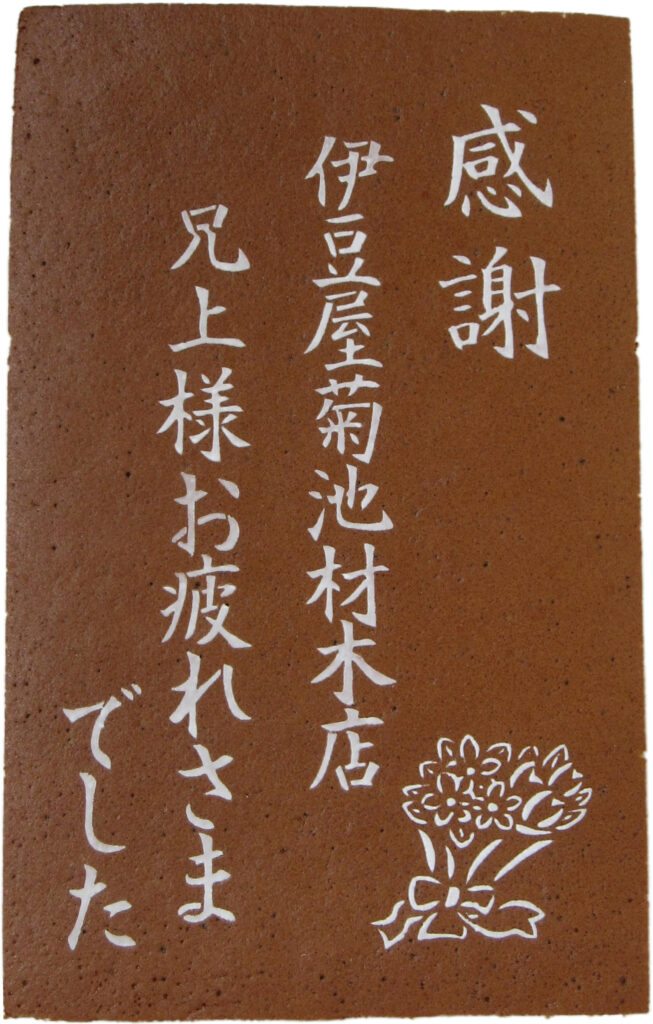 感謝
伊豆屋菊池材木店
兄上様お疲れさま
でした